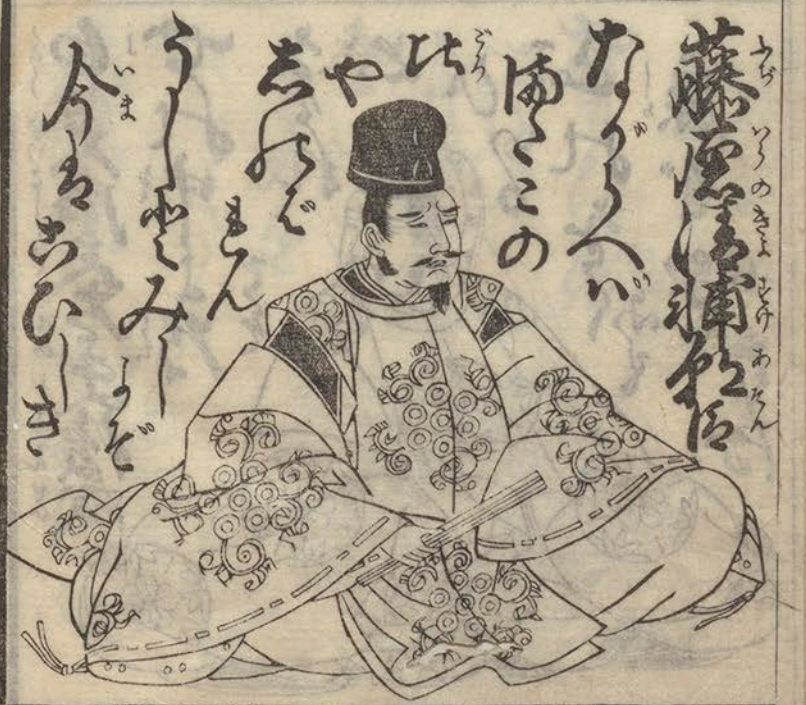 藤原清輔朝臣
ふぢわらのきよすけあそん
ながらへば
またこの
比
ごろ
や
しのば
れん
うしとみしよぞ
今はこひしき
いま